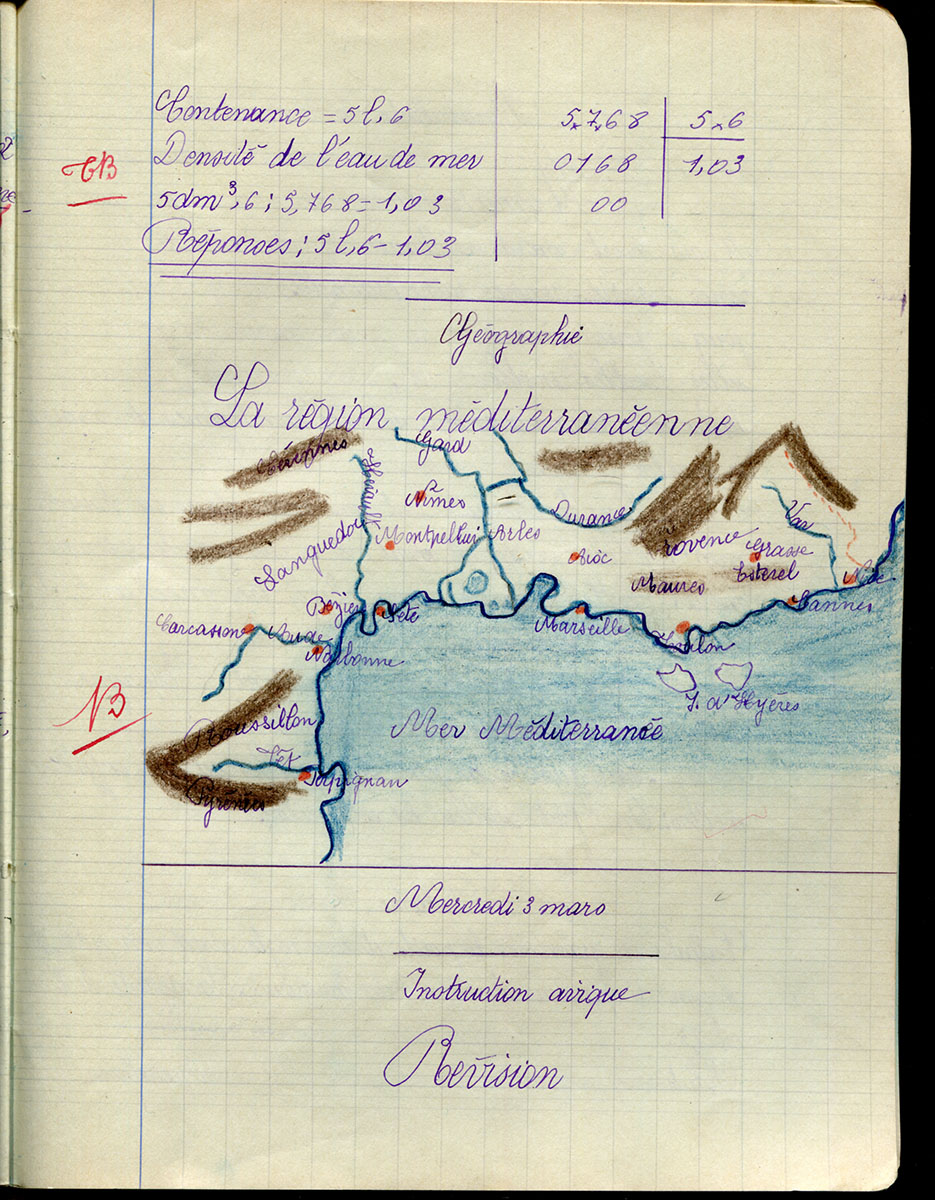 Contenance = 5l,6
Densité de l'eau de mer
5dm³,6 : 5,768 = 1,03
Réponses : 5l,6 - 1,03
5,7,68 5,6
0168 1,03
00
TB
Géographie
La région méditerranéenne
Cévennes
Gard
Hérault
Nîmes
Durance
Var
Languedoc
Montpellier
Arles
Provence
Grasse
Aix
Maures
Esterel
Nice
Béziers
Sète
Marseille
Cannes
Carcassonne
Aude
Toulon
Narbonne
I. d'Hyères
TB
Roussillon
Mer Méditerranée
Têt
Perpignan
Pyrénées
Mercredi 3 mars
Instruction civique
Révision